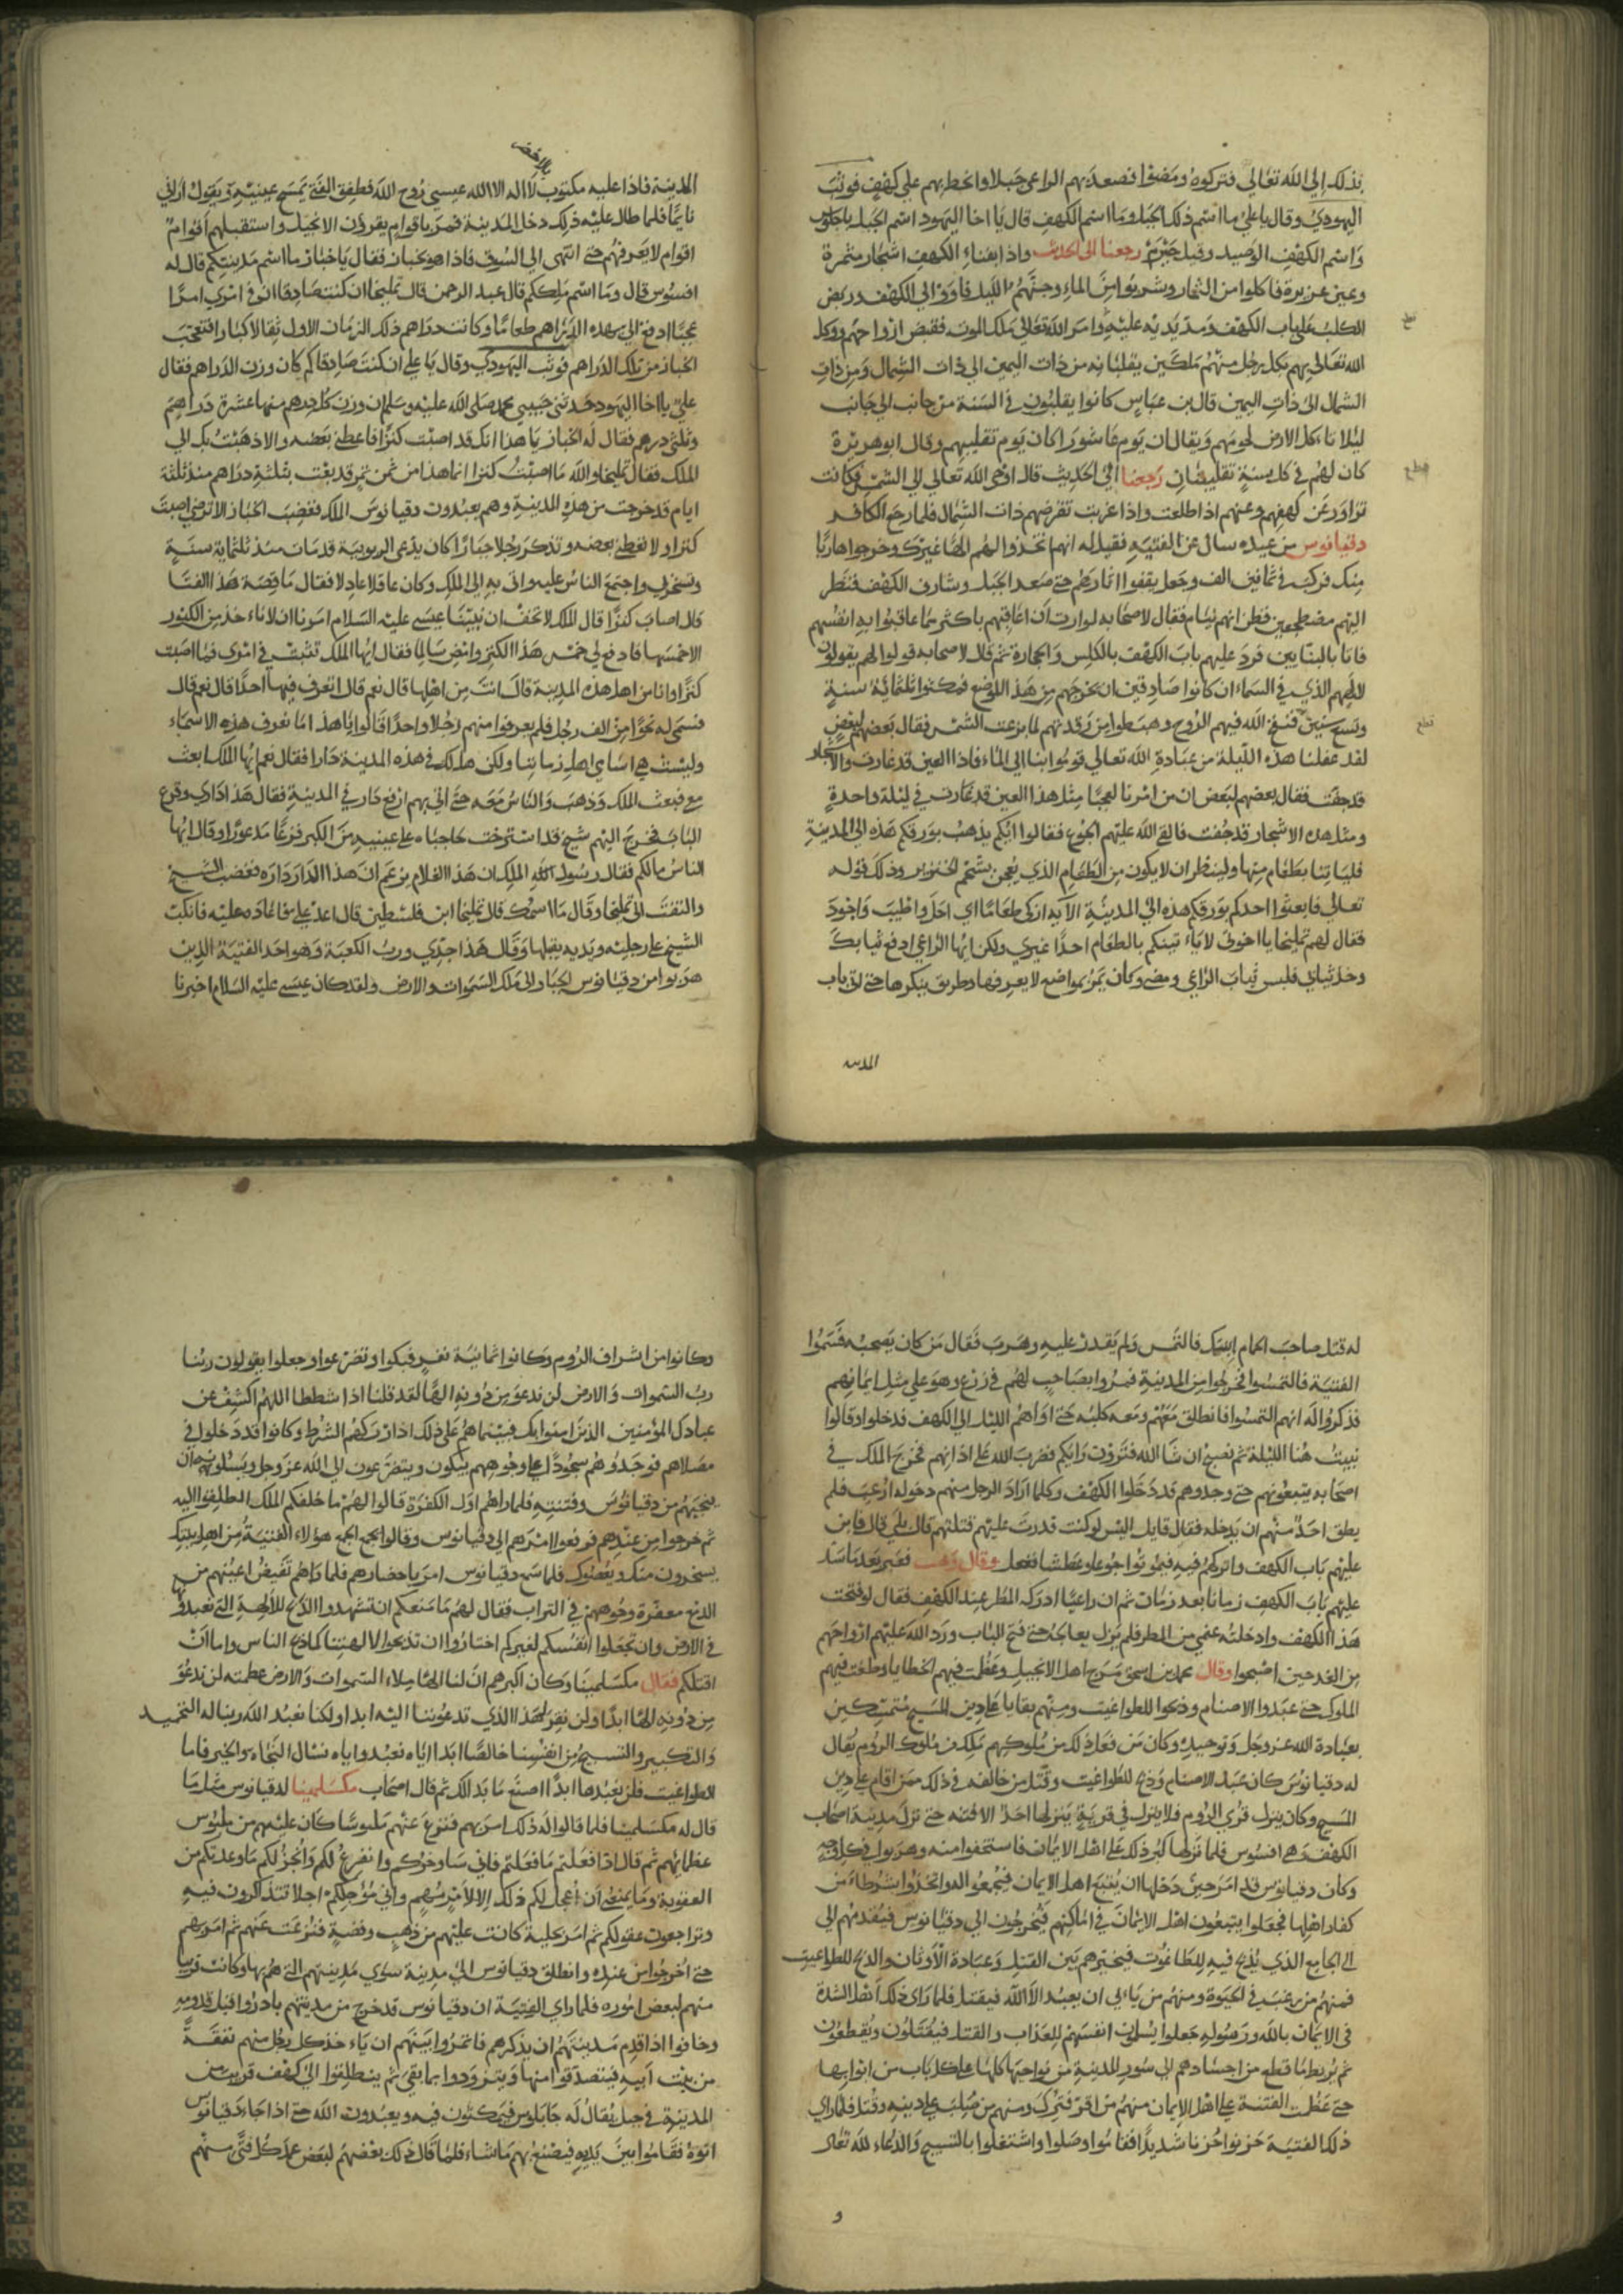 بذلك الي الله تعالي فتركوه ومضوا فصعد بهم الراعي جبلا وانحط بهم علي كهف فوثب
اليهودي وقال يا علي ما اسم ذلك الجبل وما اسم الكهف قال يا اخا اليهود اسم الجبل
واسم الكهف الوصيد وقيل خيرم رجعنا الى الحديث واذا بفناء الكهف اشجار مثمرة
وعين غزيرة فاكلوا من الثمار وشربوا من الماء وجنهم الليل فاووا الي الكهف وربض
الكلب علي باب الكهف ومد يديه عليه وامر الله تعالي ملك الموت فقبض ارواحهم ووكل
الله تعالي بهم بكل رجل منهم ملكين يقلبانه من ذات اليمين الي ذات الشمال ومن ذات
الشمال الى ذات اليمين قال بن عباس كانوا يقلبون في السنة من جانب الي جانب
ليلا تاكل الارض لحومهم ويقال ان يوم عاشورا كان يوم تقليبهم وقال ابو هريرة
كان لهم في كل سنة تقليبتان رجعنا الي الحديث قال اوحى الله تعالي الي الشمس فكانت
تزاور عن كهفهم وعنهم اذا طلعت واذا غربت تقرضهم ذات الشمال فلما رجع الكافر
دقيانوس من عيده سال عن الفتية فقيل له انهم اتخذوا لهم الها غيرك وخرجوا هاربا
منك فركب في ثمانين الف وجعل يقفوا اثارهم حتى صعد الجبل وشارف الكهف فنظر
اليهم مضطجعين فظن انهم نيام فقال لاصحابه لو اردت ان اعاقبهم باكثر مما عاقبوا به انفسهم
فاتا بالبنايين فرد عليهم باب الكهف بالكلس والحجارة ثم قال لاصحابه قولوا لهم يقولون
لالههم الذي في السماء ان كانوا صادقين ان يخرجهم من هذا الموضع فمكثوا ثلثمائة سنة
وتسع سنين فنفخ الله فيهم الروح وهبطوا من رقدتهم لما بزغت الشمس فقال بعضهم لبعض
لقد غفلنا هذه الليلة من عبادة الله تعالي قوموا بنا الي الماء فاذا العين قد غارت والاشجار
قد جفت فقال بعضهم لبعض ان من امرنا لعجبا مثل هذا العين قد غارت في ليلة واحدة
ومثل هذه الاشجار قد جفت فالقى الله عليهم الجوع فقالوا ايكم يذهب بورقكم هذه الي المدينة
فلياتنا بطعام منها ولينظر ان لا يكون من الطعام الذي يعجن بشحم الخنزير وذلك قوله
تعالي فابعثوا احدكم بورقكم هذه الي المدينة الآية ازكى طعاما اي احل واطيب واجود
فقال لهم تمليخا يا اخوتي لا ياتينكم بالطعام احدا غيري ولكن ايها الراعي ادفع ثيابك
وخذ ثيابي فلبس ثياب الراعي ومضى وكان يمر بمواضع لا يعرفها وطريق ينكرها حتى اتى باب
المدينه
المدينة فاذا عليه مكتوب لا اله الا الله عيسى روح الله فطفق الفتى يمسح عينيه ويقول اراني
نايما فلما طال عليه ذلك دخل المدينة فمر باقوام يقرؤن الانجيل واستقبلهم اقوام
اقوام لا يعرفهم حتى انتهى الي السوق فاذا هو بخباز فقال يا خباز ما اسم مدينتكم قال له
افسوس قال وما اسم ملككم قال عبد الرحمن قال تمليخا ان كنت صادقا انو في امري امرا
عجبا ادفع الي بهذه الدراهم طعاما وكانت دراهم ذلك الزمان الاول ثقالا كبارا فتعجب
الخباز من تلك الدراهم فوثب اليهودي وقال يا علي ان كنت صادقا كم كان وزن الدراهم فقال
علي يا اخا اليهود حدثني حبيبي محمد صلى الله عليه وسلم ان وزن كل درهم منها عشرة دراهم
وثلثي درهم فقال له الخباز يا هذا انك قد اصبت كنزا فاعطني بعضه والا ذهبت بك الي
الملك فقال تمليخا والله ما اصبت كنزا انما هذا من ثمن تمر قد بعت بثلثة دراهم منذ ثلثة
ايام قد خرجت من هذه المدينة وهم يعبدون دقيانوس الملك فغضب الخباز الا ترضي اصبت
كنزا ولا تعطي بعضه وتذكر رجلا جبارا كان يدعى الربوبية قد مات منذ ثلثماية سنة
وتسخر بي واجتمع الناس عليه واتى به الي الملك وكان عاقلا عادلا فقال ما قصة هذا الفتا
قالوا اصاب كنزا قال الملك لا تخف ان نبينا عيسى عليه السلام امرنا ان لا ناخذ من الكنوز
الا خمسها فادفع لي خمس هذا الكنز وامض سالما فقال ايها الملك تثبت في امري فما اصبت
كنزا وانا من اهل هذه المدينة قال انت من اهلها قال نعم قال اتعرف فيها احدا قال نعم قال
فسمى له نحوا من الف رجل فلم يعرفوا منهم رجلا واحدا قالوا يا هذا ما نعرف هذه الاسماء
وليست هي اسماي اهل زماننا ولكن هل لك في هذه المدينة دارا فقال نعم ايها الملك ابعث
مع فبعث الملك وذهب والناس معه حتى اتى بهم ارفع دار في المدينة فقال هذا داري وقرع
الباب فخرج اليهم شيخ قد استرخت حاجباه على عينيه من الكبر فزعا مذعورا وقال ايها
الناس مالكم فقال رسول الملك ان هذا الغلام يزعم ان هذا الدار داره فغضب الشيخ
والتفت الي تمليخا وقال ما اسمك قال تمليخا ابن فلسطين قال اعد علي فاعاده عليه فانكب
الشيخ على رجليه ويديه يقبلها وقال هذا جدي ورب الكعبة وهو احد الفتية الذين
هربوا من دقيانوس الجبار الي ملك السموات والارض ولقد كان عيسى عليه السلام اخبرنا
له قتل صاحب الحمام ابنك فالتمس ولم يقدر عليه وهرب فقال من كان يصحبه فسموا
الفتية فالتمسوا فخرجوا من المدينة فمروا بصاحب لهم في زرع وهو علي مثل ايمانهم
فذكروا له انهم التمسوا فانطلق معهم ومعه كلبه حتى اواهم الليل الي الكهف فدخلوا وقالوا
نبيت هنا الليلة ثم نصبح ان شا الله فترون رايكم فضرب الله على اذانهم فخرج الملك في
اصحابه يتبعونهم حتى وجدوهم قد دخلوا الكهف وكلما اراد الرجل منهم دخوله ارعب فلم
يطق احد منهم ان يدخله فقال قايل اليس لو كنت قدرت عليهم قتلتهم قال بلي قال فابن
عليهم باب الكهف واتركهم فيه فيموتوا جوعا وعطشا ففعل وقال وهب فعبر بعد ما سد
عليهم باب الكهف زمانا بعد زمان ثم ان راعيا ادركه المطر عند الكهف فقال لو فتحت
هذا الكهف وادخلته غنمي من المطر فلم يزل يعالجه حتى فتح الباب ورد الله عليهم ارواحهم
من الغد حين اصبحوا وقال محمد بن اسحق مرج اهل الانجيل وعظمت فيهم الخطايا وطغت فيهم
الملوك حتى عبدوا الاصنام وذبحوا للطواغيت ومنهم بقايا على دين المسيح متمسكين
بعبادة الله عز وجل وتوحيده وكان من فعل ذلك من ملوكهم ملك من ملوك الروم يقال
له دقيانوس كان عبد الاصنام وذبح للطواغيت وقتل من خالفه في ذلك ممن اقام على دين
المسيح وكان ينزل قرى الروم فلا ينزل في قرية ينزلها احد الا فتنه حتى نزل مدينة اصحاب
الكهف وهي افسوس فلما نزلها كبر ذلك على اهل الايمان فاستخفوا منه وهربوا في كل وجه
وكان دقيانوس قد امر حين دخلها ان يتبع اهل الايمان فيجمعوا له واتخذوا شرطا من
كفار اهلها فجعلوا يتبعون اهل الايمان في اماكنهم فيخرجون الي دقيانوس فيقدمهم الي
الي الجامع الذي يذبح فيه للطاغوت فيخيرهم بين القتل وعبادة الاوثان والذبح للطواغيت
فمنهم من يرغب في الحيوة ومنهم من يابي ان يعبد الا الله فيقتل فلما راى ذلك اهل الشدة
في الايمان بالله ورسوله جعلوا يسلمون انفسهم للعذاب والقتل فيقتلون ويقطعون
ثم يربط ما قطع من اجسادهم الي سور المدينة من نواحيها كلها على كل باب من ابوابها
حتى عظمت الفتنة على اهل الايمان منهم من اقر فترك ومنهم من صلب على دينه وقتل فلما راي
ذلك الفتية حزنوا حزنا شديدا فقاموا وصلوا واشتغلوا بالتسبيح والدعاء لله تعالى
و
وكانوا من اشراف الروم وكانوا ثمانية نفر فبكوا وتضرعوا وجعلوا يقولون ربنا
رب السموات والارض لن ندعو من دونه الها لقد قلنا اذا شططا اللهم اكشف عن
عبادك المؤمنين الذين امنوا بك فبينما هم على ذلك اذ ادركهم الشرط وكانوا قد دخلوا في
مصلاهم فوجدوهم سجودا على وجوههم يبكون ويتضرعون الي الله عز وجل ويسئلونه ان
ينجيهم من دقيانوس وفتنته فلما راهم اول الكفرة قالوا لهم ما خلفكم الملك انطلقوا اليه
ثم خرجوا من عندهم فرفعوا امرهم الي دقيانوس وقالوا نجمع الجمع هؤلاء الفتية من اهل بيتك
يسخرون منك ويعصونك فلما سمع دقيانوس امر باحضارهم فلما راهم تفيض اعينهم من
الدمع معفرة وجوههم في التراب فقال لهم ما منعكم ان تشهدوا الذبح للالهة التي تعبد
في الارض وان تجعلوا انفسكم لغيركم اختاروا ان تذبحوا لالهتنا كما ذبح الناس واما ان
اقتلكم فقال مكسلمينا وكان اكبرهم ان لنا الها ملاء السموات والارض عظمته لن ندعو
من دونه الها ابدا ولن نقر لهذا الذي تدعوننا اليه ابدا ولكنا نعبد الله ربنا له التحميد
والتكبير والتسبيح من انفسنا خالصا ابدا اياه نعبد واياه نسال النجاة والخير فاما
الطواغيت فلن نعبدها ابدا اصنع ما بدا لك ثم قال اصحاب مكسلمينا لدقيانوس مثل ما
قال له مكسلمينا فلما قالوا له ذلك امر بهم فنزع عنهم ملبوسا كان عليهم من ملبوس
عظمائهم ثم قال اذا فعلتم ما فعلتم فاني ساوخركم وانفرغ لكم وانجز لكم ما وعدتكم من
العقوبة وما يمنعني ان اعجل لكم ذلك الا وانى مؤجلكم اجلا تتذكرون فيه
وتراجعون عقولكم ثم امر بحلية كانت عليهم من ذهب وفضة فنزعت عنهم ثم امر بهم
حتى اخرجوا من عنده وانطلق دقيانوس الي مدينة سوى مدينتهم التي هم بها وكانت قريبا
منهم لبعض اموره فلما راي الفتية ان دقيانوس قد خرج من مدينتهم بادروا قبل قدومه
وخافوا اذا قدم مدينتهم ان يذكرهم فاتمروا بينهم ان ياخذ كل رجل منهم نفقة
من بيت ابيه فيتصدقوا منها ويتزودوا بما بقي ثم ينطلقوا الي كهف قريب من
المدينة في جبل يقال له جابلوس فيمكثون فيه ويعبدون الله حتى اذا جاء دقيانوس
اتوه فقاموا بين يديه فيصنع بهم ما شاء فلما قال ذلك بعضهم لبعض عمد كل فتى منهم